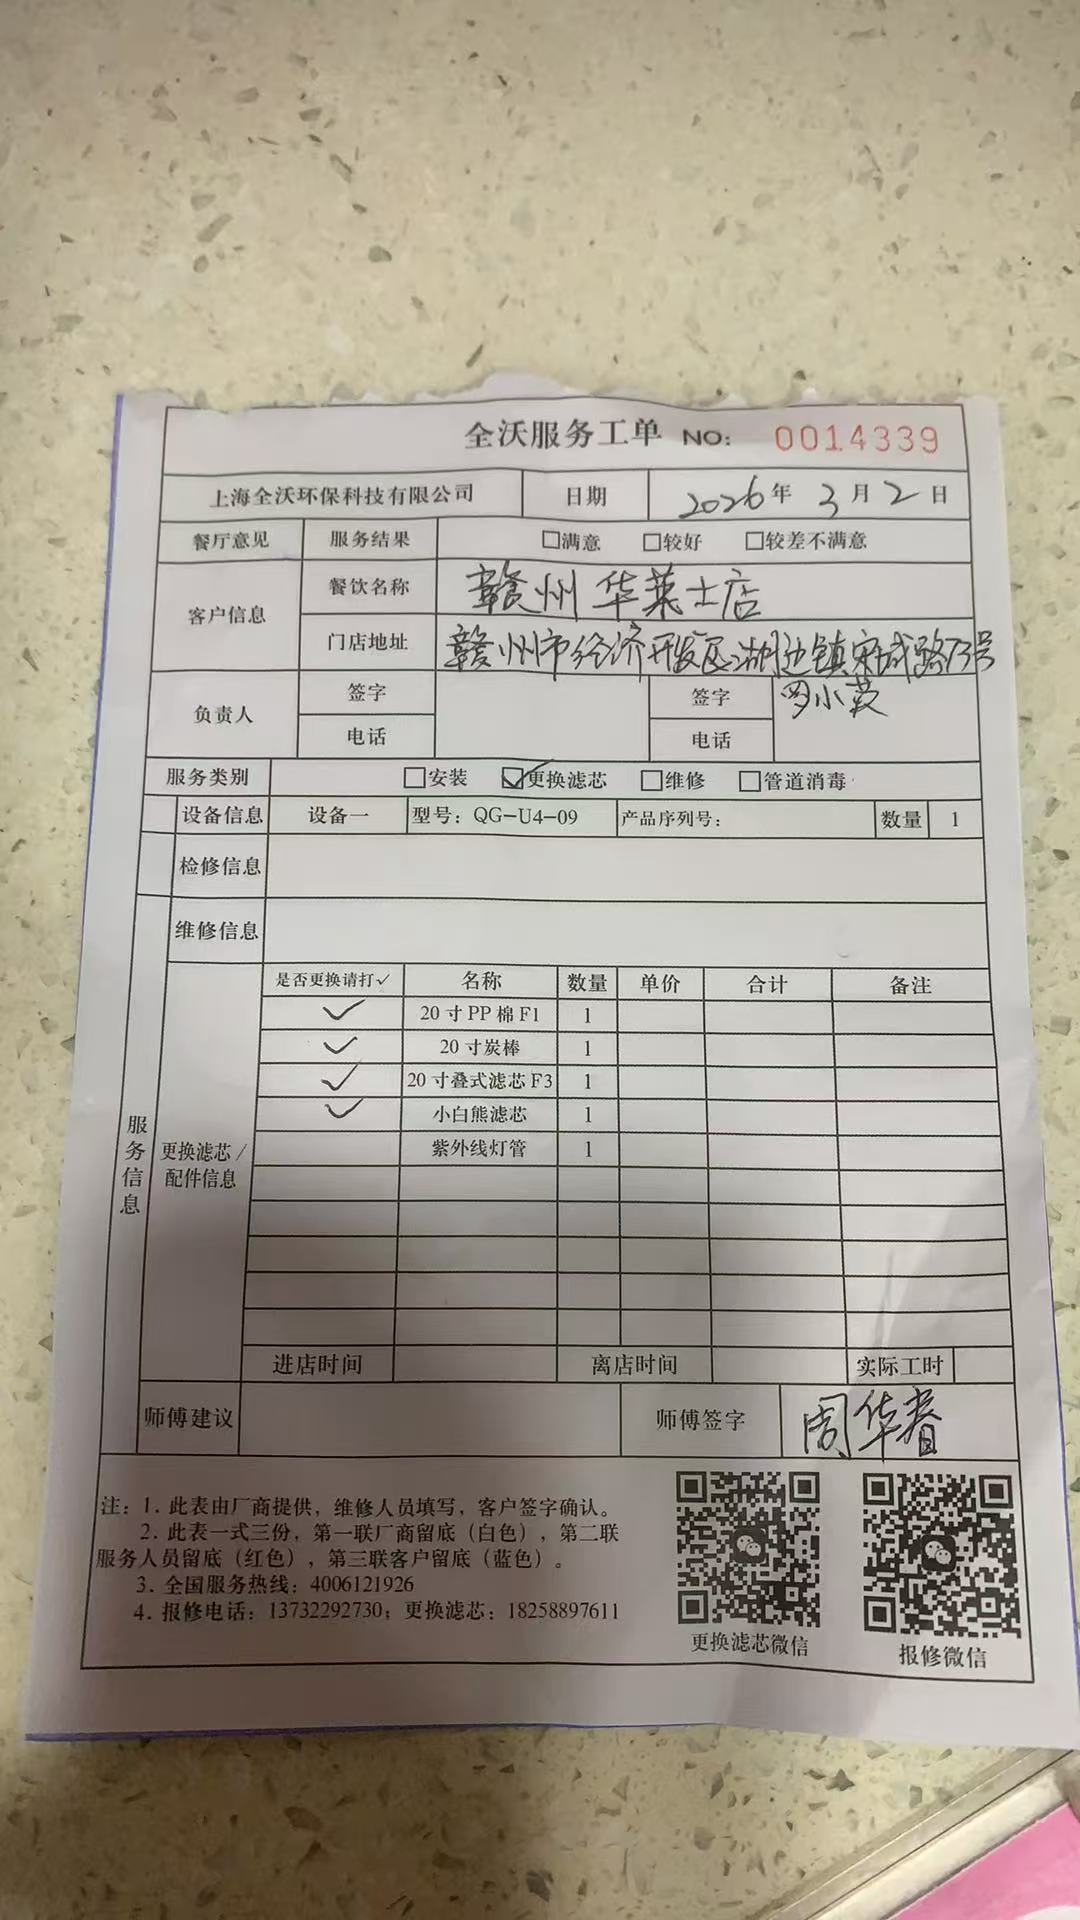 全沃服务工单 NO: 0014339
上海全沃环保科技有限公司 日期 2026年 3月 2日
餐厅意见 服务结果 □满意 □较好 □较差不满意
客户信息 餐饮名称 赣州华莱士店
门店地址 赣州市经济开发区湖边镇宋城路73号
负责人 签字 签字 罗小英
电话 电话
服务类别 □安装 ☑更换滤芯 □维修 □管道消毒
设备信息 设备一 型号：QG-U4-09 产品序列号： 数量 1
检修信息
维修信息
服务信息
更换滤芯/配件信息
是否更换请打✓ 名称 数量 单价 合计 备注
✓ 20寸PP棉F1 1
✓ 20寸炭棒 1
✓ 20寸叠式滤芯F3 1
✓ 小白熊滤芯 1
紫外线灯管 1
进店时间 离店时间 实际工时
师傅建议 师傅签字 周华春
注：1. 此表由厂商提供，维修人员填写，客户签字确认。
2. 此表一式三份，第一联厂商留底（白色），第二联
服务人员留底（红色），第三联客户留底（蓝色）。
3. 全国服务热线：4006121926
4. 报修电话：13732292730；更换滤芯：18258897611
更换滤芯微信 报修微信